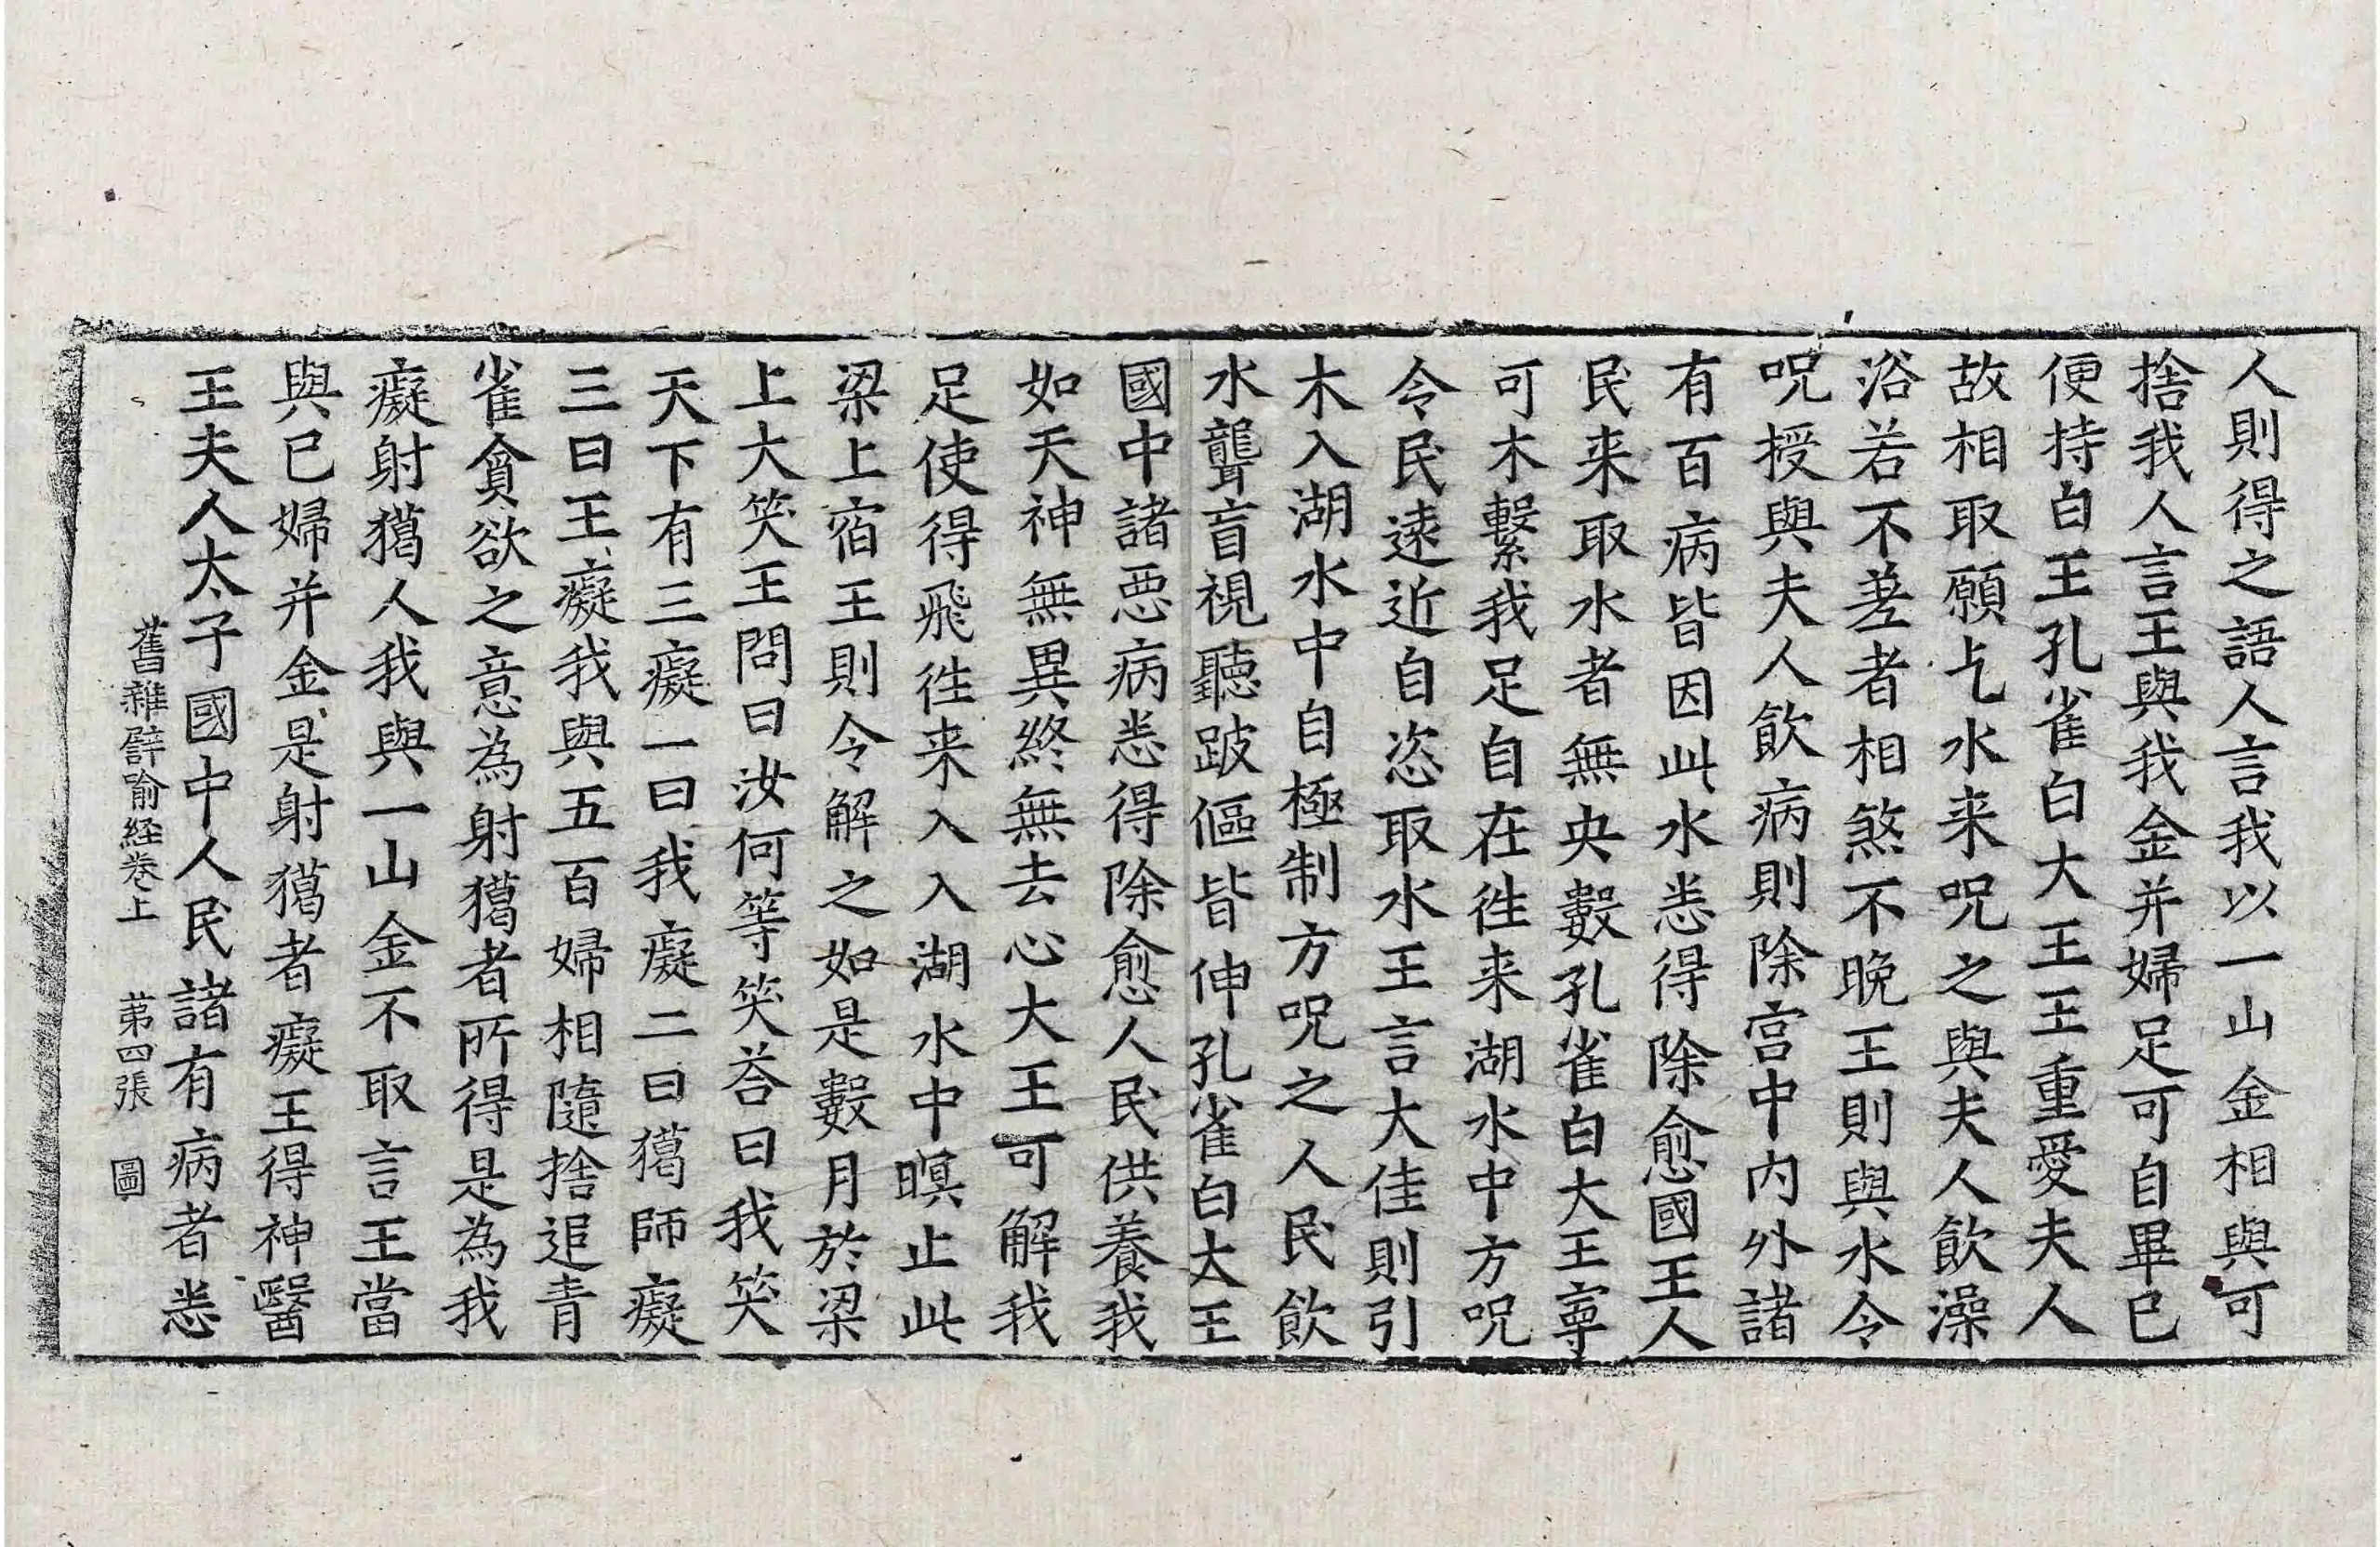 人則得之語人言我以一山金相與可
捨我人言王與我金并婦足可自畢已
便持白王孔雀白大王王重愛夫人
故相取願乞水来呪之與夫人飲澡
浴若不差者相煞不晚王則與水令
呪授與夫人飲病則除宫中内外諸
有百病皆因此水悉得除愈國王人
民来取水者無央數孔雀白大王寧
可木繫我足自在往来湖水中方呪
令民遠近自恣取水王言大佳則引
木入湖水中自極制方呪之人民飲
水聾盲視聽跛傴皆伸孔雀白大王
國中諸惡病悉得除愈人民供養我
如天神無異終無去心大王可解我
足使得飛往来入入湖水中暝止此
梁上宿王則令解之如是數月於梁
上大笑王問曰汝何等笑荅曰我笑
天下有三癡一曰我癡二曰獦師癡
三曰王癡我與五百婦相隨捨追青
雀貪欲之意為射獦者所得是為我
癡射獦人我與一山金不取言王當
與已婦并金是射獦者癡王得神醫
王夫人太子國中人民諸有病者悉
舊雜譬喻経卷上 苐四張 圖